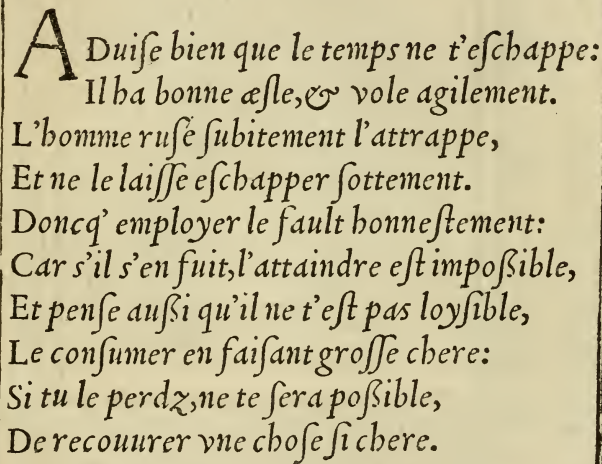 ADuiſe bien que le temps ne t'eſchappe:
Il ha bonne æſle, & vole agilement.
L'homme ruſé ſubitement l'attrappe,
Et ne le laiſſe eſchapper ſottement.
Doncq' employer le fault honneſtement:
Car s'il s'en fuit, l'attaindre eſt impoßible,
Et penſe außi qu'il ne t'eſt pas loyſible,
Le conſumer en faiſant groſſe chere:
Si tu le perdz, ne te ſera poßible,
De recouurer vne choſe ſi chere.